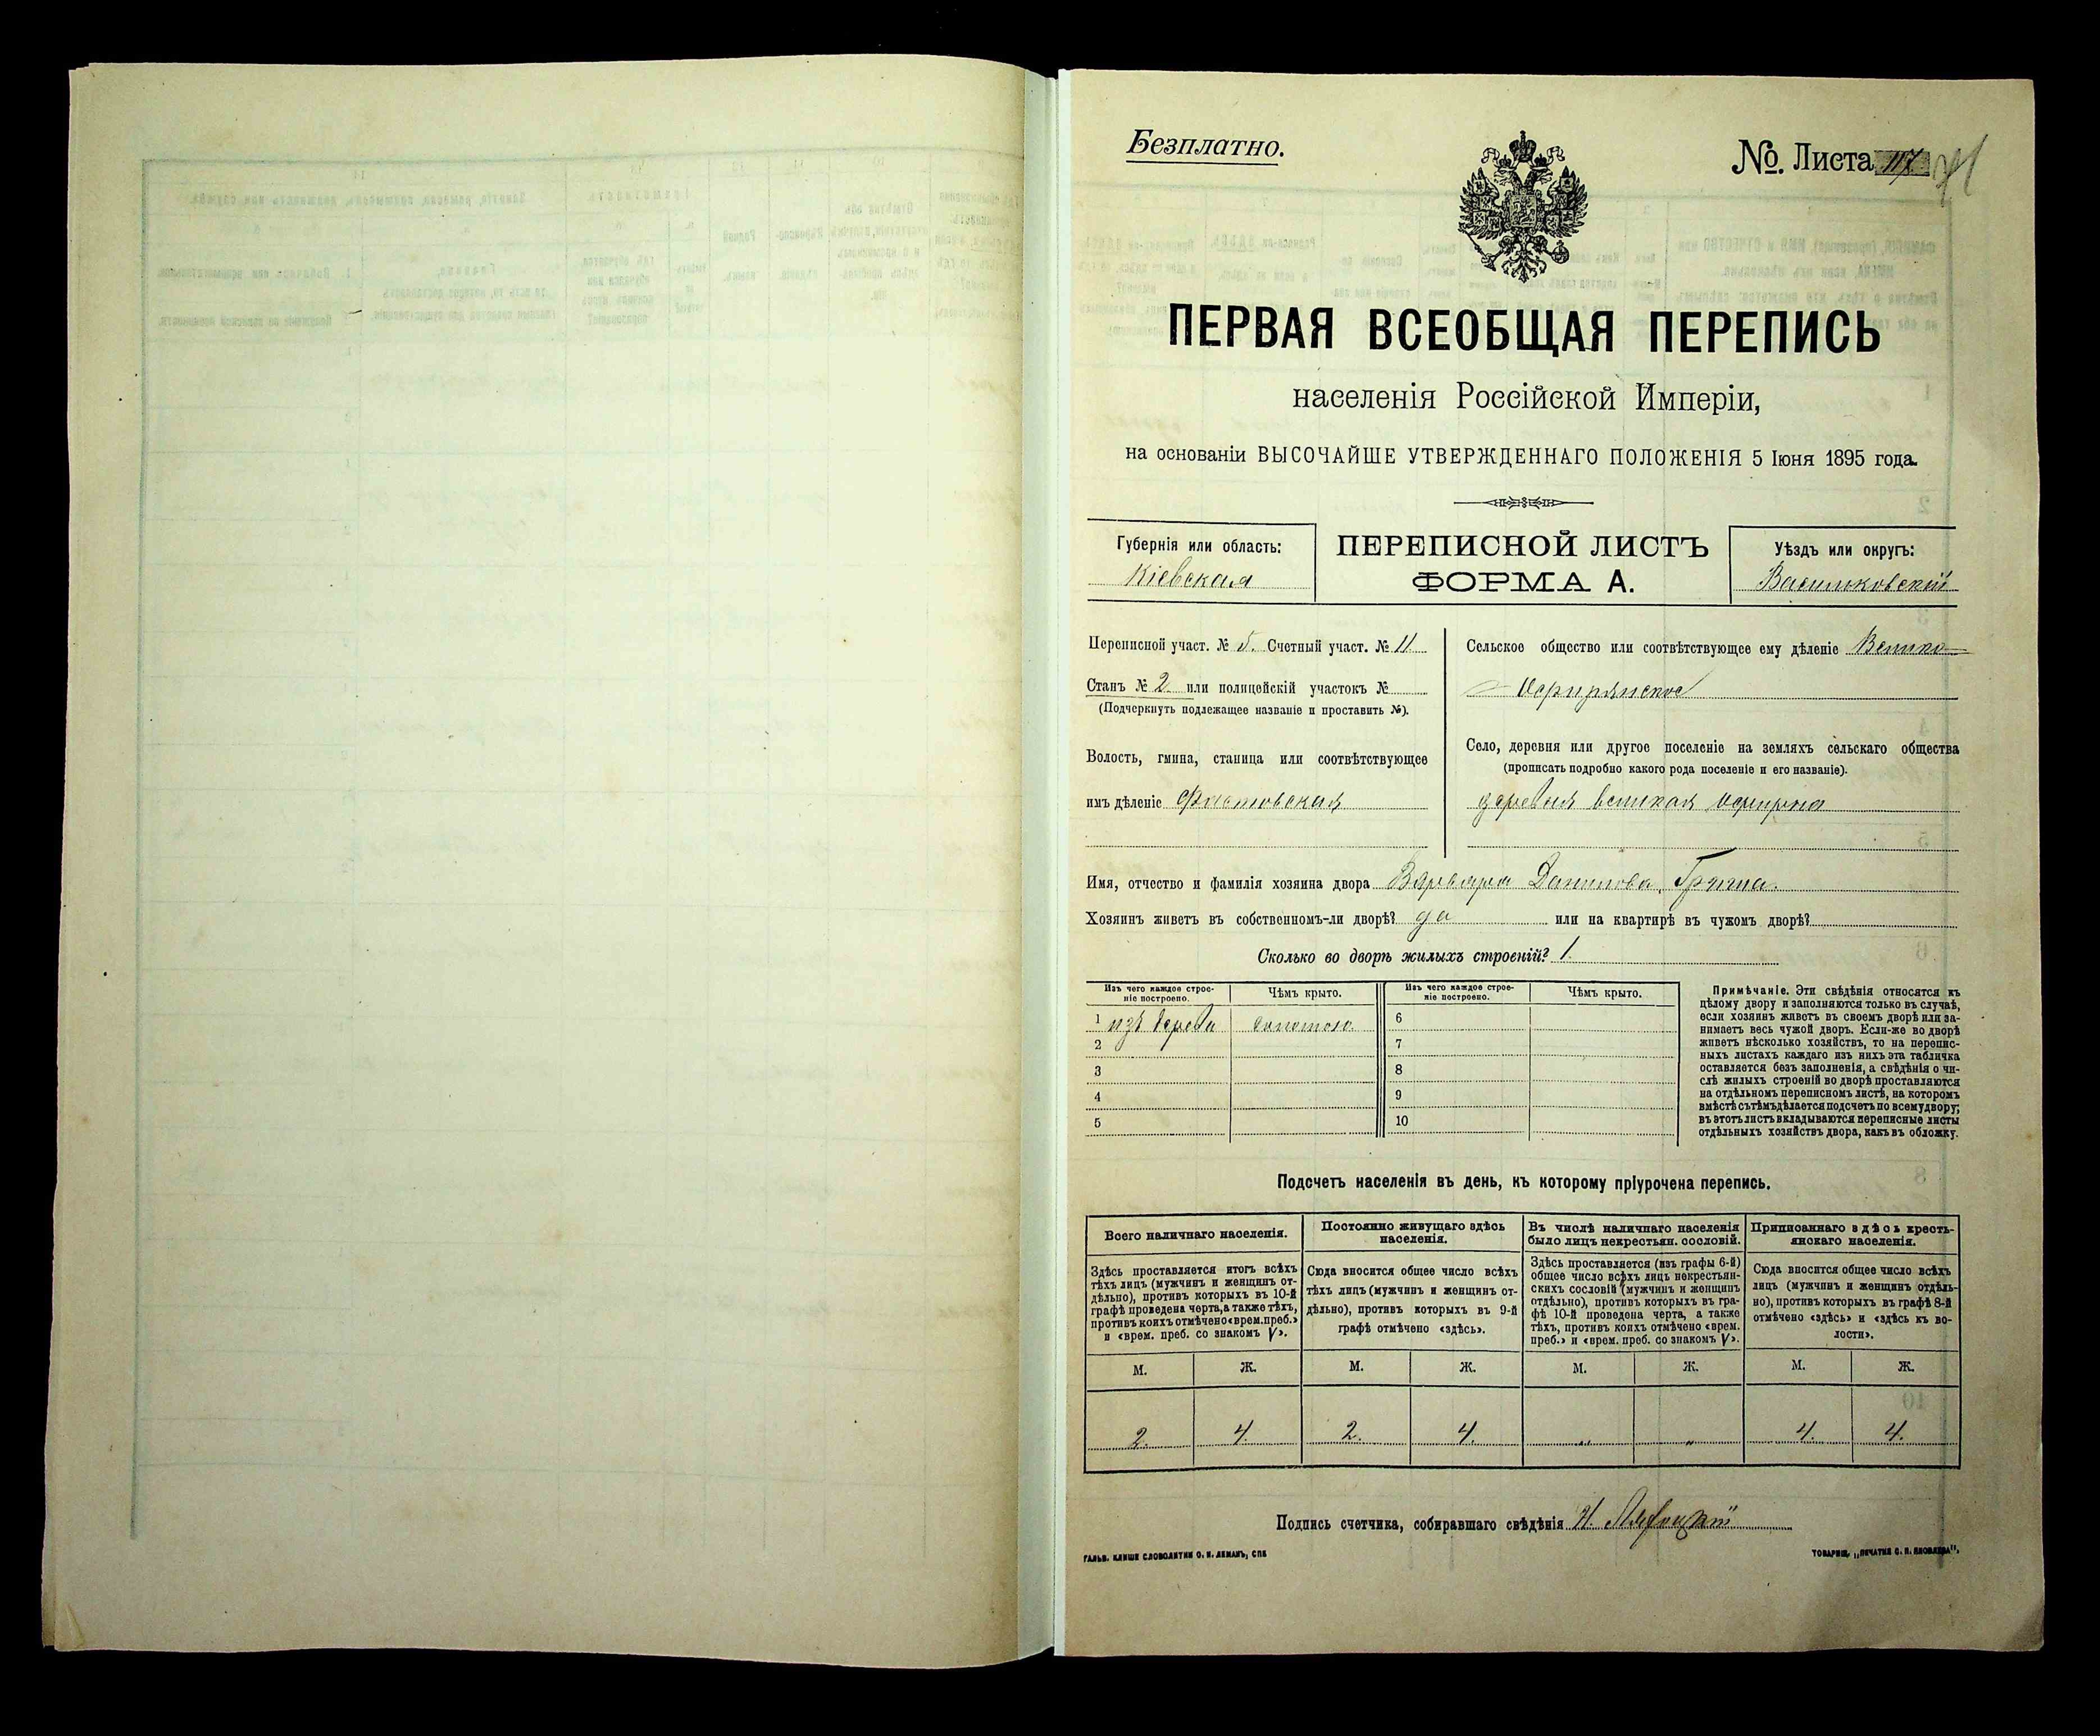 Безплатно.
№. Листа 117.
ПЕРВАЯ ВСЕОБЩАЯ ПЕРЕПИСЬ
населенія Россійской Имперіи,
на основаніи ВЫСОЧАЙШЕ УТВЕРЖДЕННАГО ПОЛОЖЕНІЯ 5 Іюня 1895 года.
Губернія или область:
Кіевская
ПЕРЕПИСНОЙ ЛИСТЪ
ФОРМА А.
Уѣздъ или округъ:
Васильковскій
Переписной участ. № 5. Счетный участ. № 11
Станъ № 2 или полицейскій участокъ №
(Подчеркнуть подлежащее названіе и проставить №).
Волость, гмина, станица или соотвѣтствующее
имъ дѣленіе Фастовская
Сельское общество или соотвѣтствующее ему дѣленіе Велико-
Село, деревня или другое поселеніе на земляхъ сельскаго общества
(прописать подробно какого рода поселеніе и его названіе).
деревня великая
Имя, отчество и фамилія хозяина двора Варвара Данилова
Хозяинъ живетъ въ собственномъ-ли дворѣ? да или на квартирѣ въ чужомъ дворѣ?
Сколько во дворѣ жилыхъ строеній? 1.
Изъ чего каждое строе-
ніе построено.
Чѣмъ крыто.
Изъ чего каждое строе-
ніе построено.
Чѣмъ крыто.
1 изъ дерева соломою
2
3
4
5
6
7
8
9
10
Примѣчаніе. Эти свѣдѣнія относятся къ
цѣлому двору и заполняются только въ случаѣ,
если хозяинъ живетъ въ своемъ дворѣ или за-
нимаетъ весь чужой дворъ. Если-же во дворѣ
живетъ нѣсколько хозяйствъ, то на перепис-
ныхъ листахъ каждаго изъ нихъ эта табличка
оставляется безъ заполненія, а свѣдѣнія о чи-
слѣ жилыхъ строеній во дворѣ проставляются
на отдѣльномъ переписномъ листѣ, на которомъ
вмѣстѣ съ тѣмъ дѣлается подсчетъ по всему двору;
въ этотъ листъ вкладываются переписные листы
отдѣльныхъ хозяйствъ двора, какъ въ обложку.
Подсчетъ населенія въ день, къ которому пріурочена перепись.
Всего наличнаго населенія.
Постоянно живущаго здѣсь
населенія.
Въ числѣ наличнаго населенія
было лицъ некрестьян. сословій.
Приписаннаго здѣсь кресть-
янскаго населенія.
Здѣсь проставляется итогъ всѣхъ
тѣхъ лицъ (мужчинъ и женщинъ от-
дѣльно), противъ которыхъ въ 10-й
графѣ проведена черта, а также тѣхъ,
противъ коихъ отмѣчено «врем. преб.»
и «врем. преб. со знакомъ V».
Сюда вносится общее число всѣхъ
тѣхъ лицъ (мужчинъ и женщинъ от-
дѣльно), противъ которыхъ въ 9-й
графѣ отмѣчено «здѣсь».
Здѣсь проставляется (изъ графы 6-й)
общее число всѣхъ лицъ некрестьян-
скихъ сословій (мужчинъ и женщинъ
отдѣльно), противъ которыхъ въ гра-
фѣ 10-й проведена черта, а также
тѣхъ, противъ коихъ отмѣчено «врем.
преб.» и «врем. преб. со знакомъ V».
Сюда вносится общее число всѣхъ
лицъ (мужчинъ и женщинъ отдѣль-
но), противъ которыхъ въ графѣ 8-й
отмѣчено «здѣсь» и «здѣсь къ во-
лости».
М. Ж. М. Ж. М. Ж. М. Ж.
2. 4. 2. 4. „ „ 4. 4.
Подпись счетчика, собиравшаго свѣдѣнія
ГАЛЬВ. КЛИШЕ СЛОВОЛИТНИ О. И. ЛЕМАНЪ, СПБ
ТОВАРИЩ. „ПЕЧАТНЯ С. П. ЯКОВЛЕВА“.